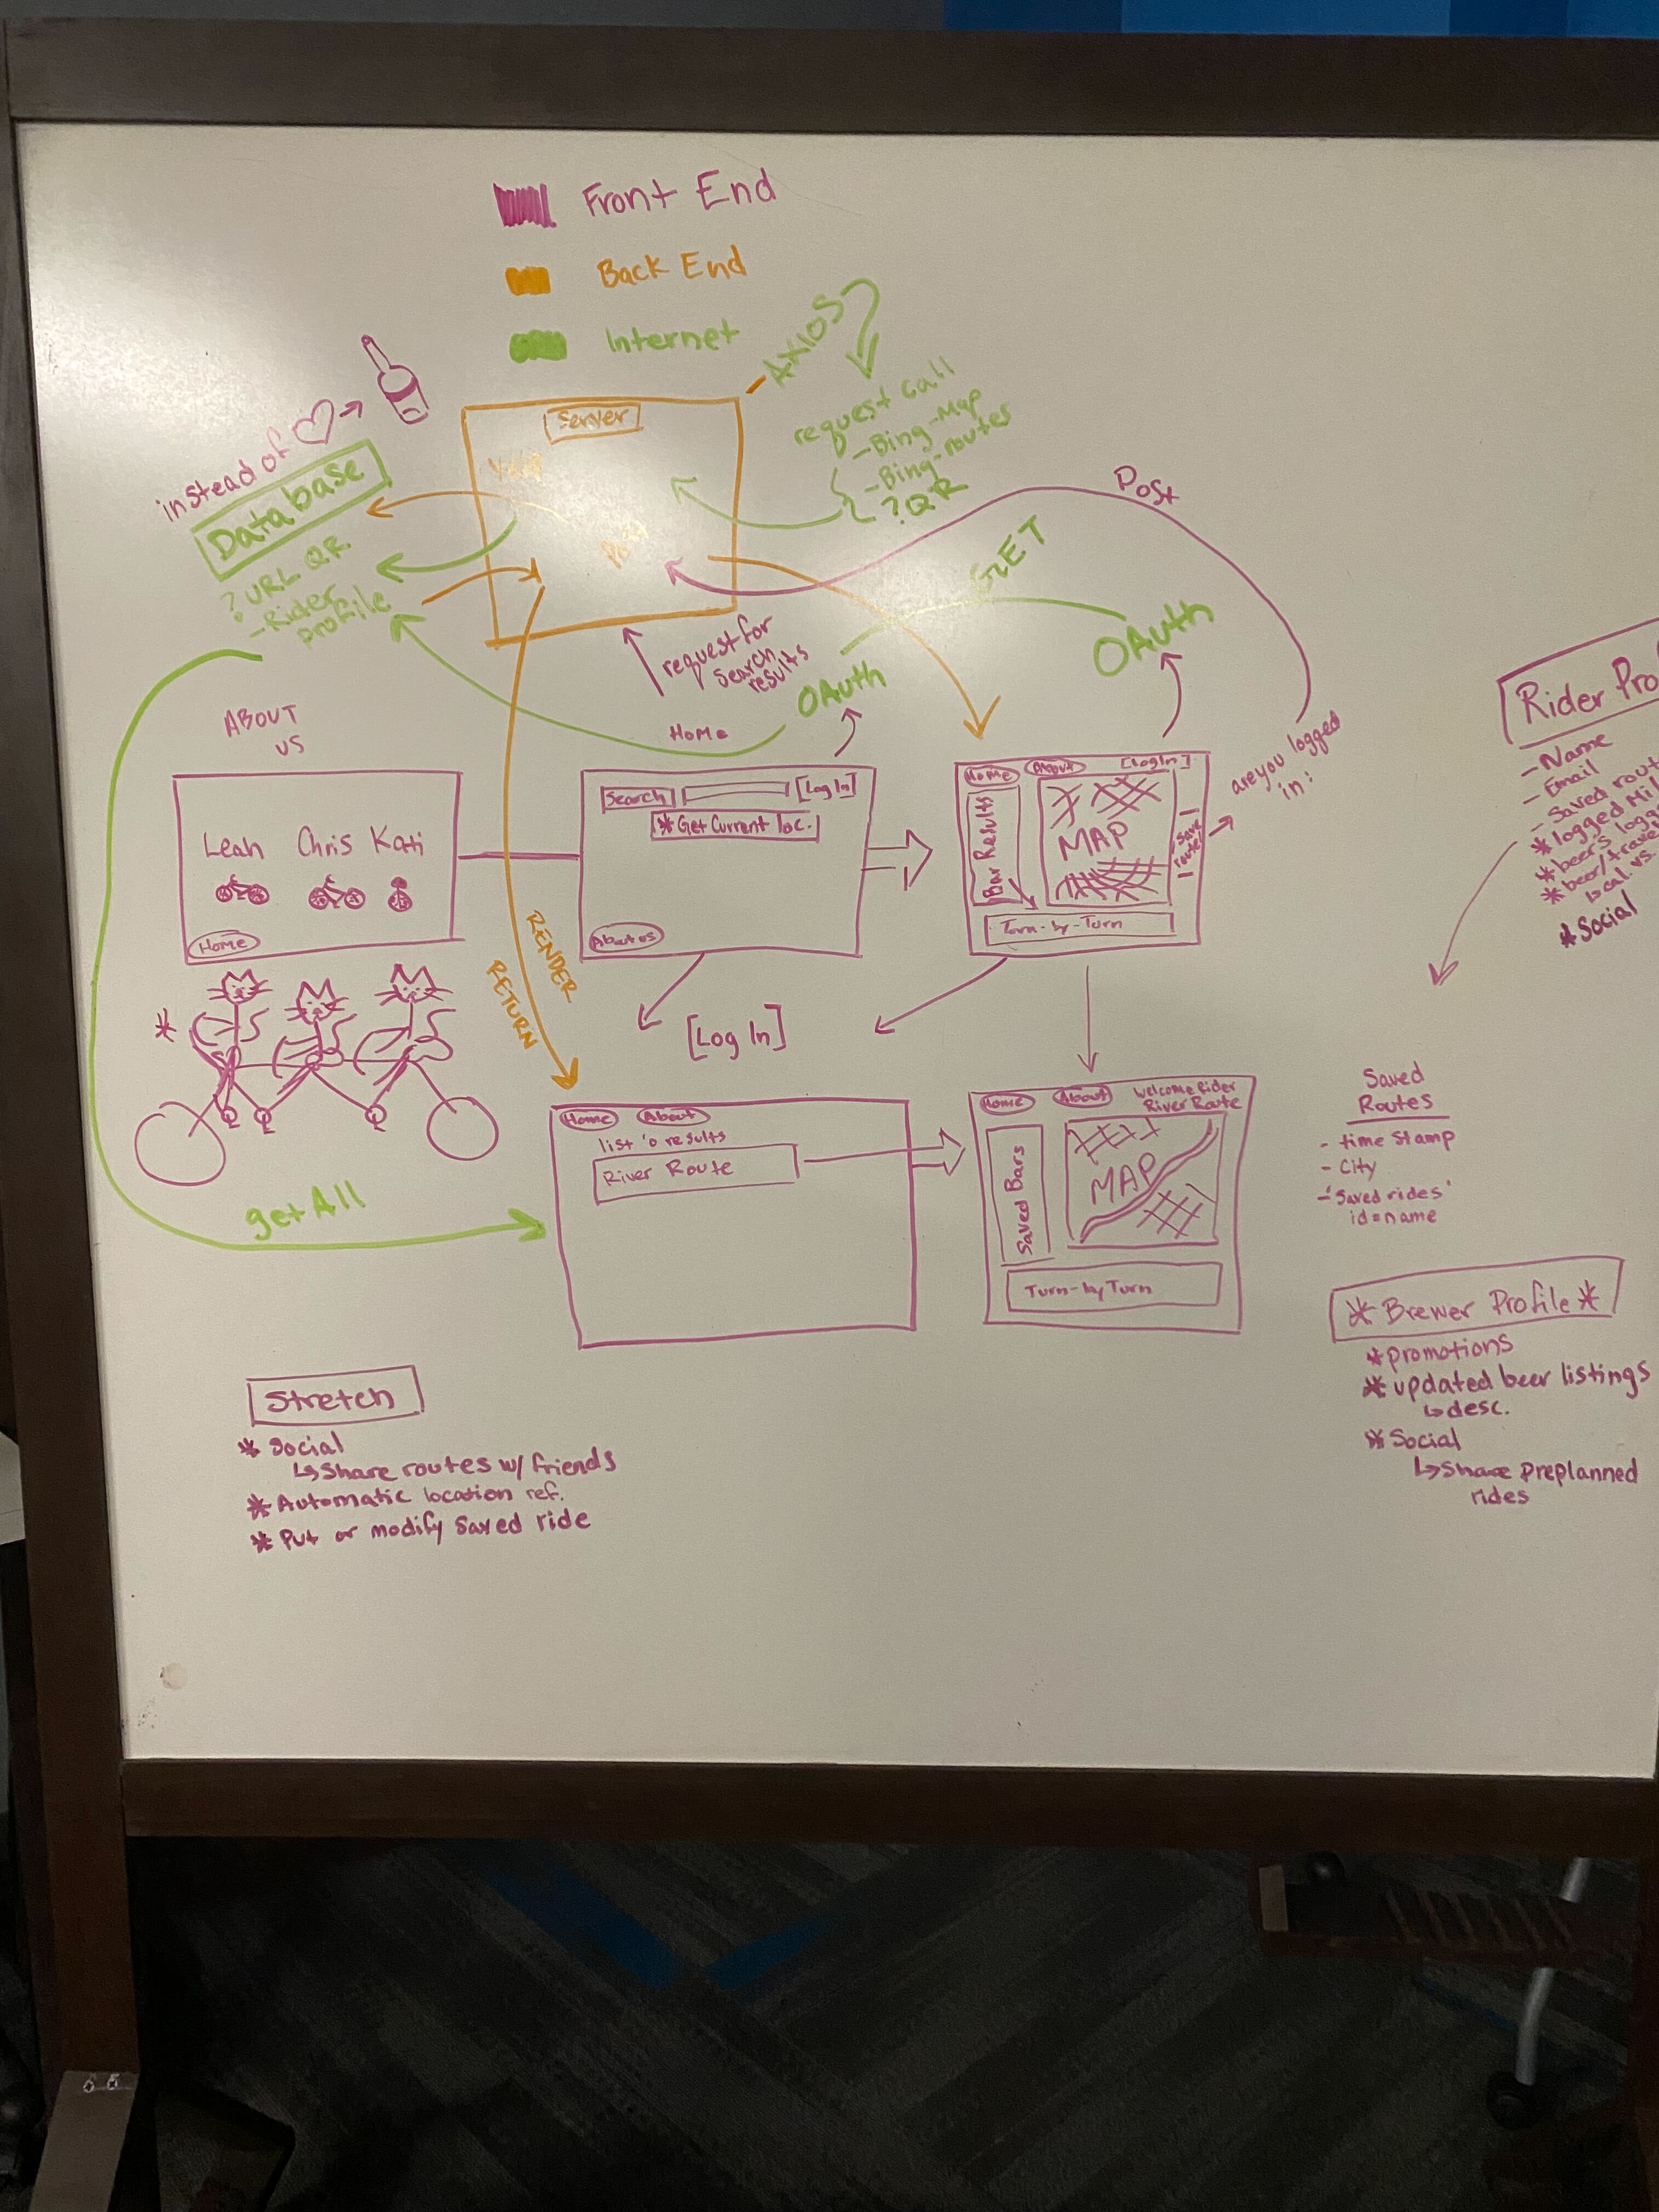 Front End
Back End
Internet
AXIOS
request call
-Bing-Map
-Bing-routes
?QR
instead of
Database
? URL QR
-Rider
profile
Server
Post
GET
OAuth
OAuth
request for
search
results
Home
are you logged
in?
ABOUT
US
Leah Chris Kati
Home
Search [Log In]
* Get Current loc.
About us
Home About [LogIn]
Bar Results
MAP
Save
route
Turn-by-Turn
RENDER
RETURN
[Log In]
Home About
list 'o results
River Route
Home About Welcome Rider
River Route
Saved Bars
MAP
Turn-by Turn
getAll
Rider Pro
-Name
-Email
-Saved rout
*logged Mil
*beers logg
*beer/trave
local vs.
*Social
Saved
Routes
- time stamp
- City
- 'Saved rides'
id=name
* Brewer Profile *
*promotions
* updated beer listings
↳desc.
* Social
↳Share preplanned
rides
Stretch
* Social
↳Share routes w/ friends
* Automatic location ref.
* Put or modify Saved ride